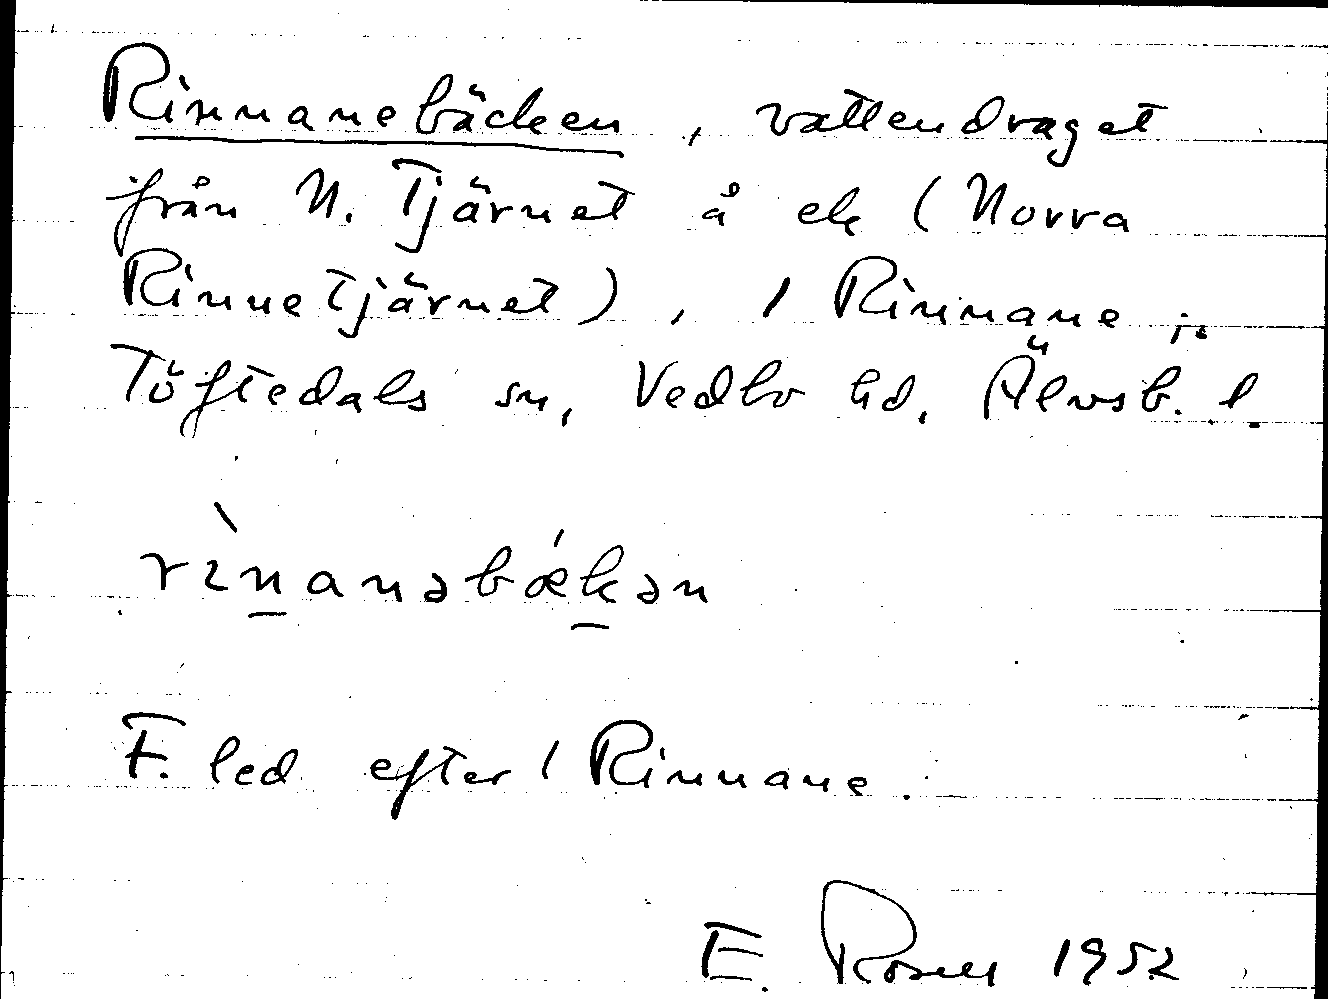 Rinnanebäcken, vattendraget
från N. Tjärnet å ek (Norra
Rinnetjärnet), / Rinnane i
Töftedals sn, Vedbo hd, Älvsb. l.
rɩ̀nanəbǽkən
F. led efter / Rinnane.
E. Rosell 1952